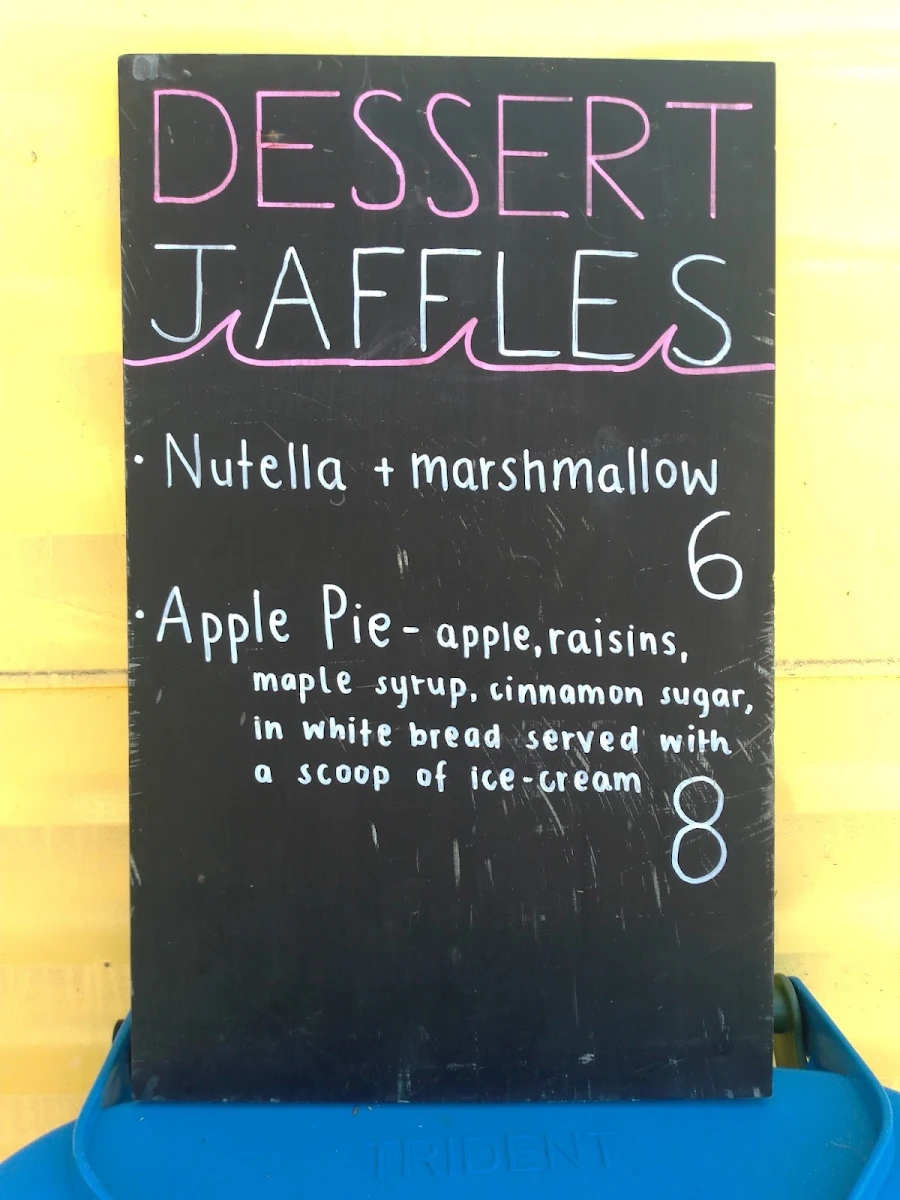 DESSERT
JAFFLES
· Nutella + marshmallow
6
· Apple Pie - apple, raisins,
maple syrup, cinnamon sugar,
in white bread served with
a scoop of ice-cream
8
TRIDENT